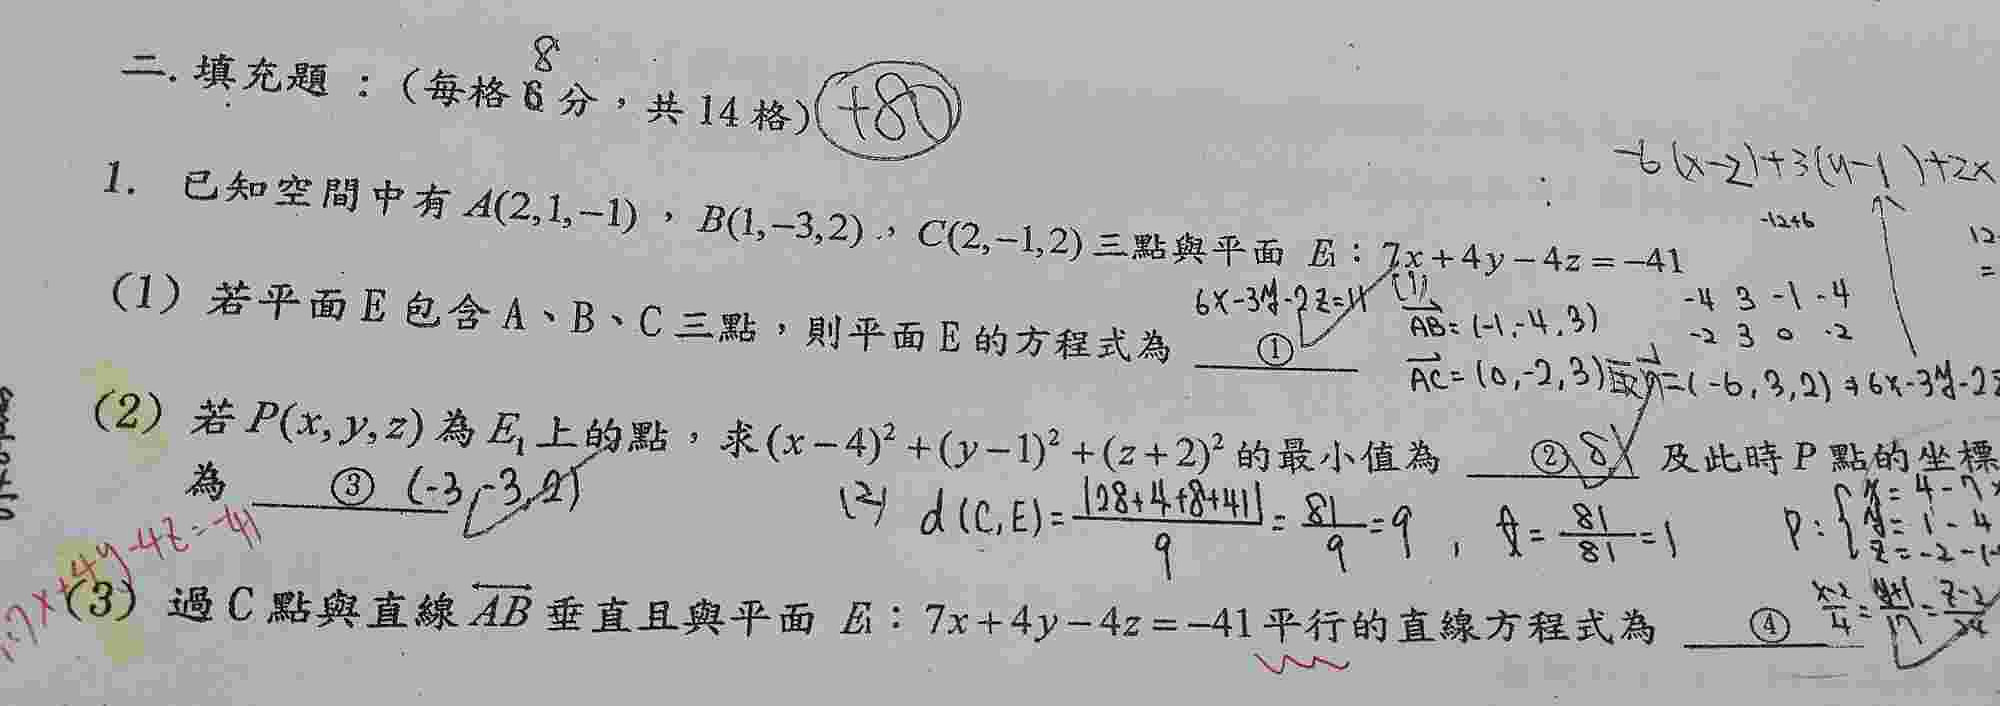 8
二. 填充題：(每格 6 分，共 14 格) +80
-6(x-2)+3(y-1)+2x
1. 已知空間中有 A(2,1,−1)，B(1,−3,2)，C(2,−1,2) 三點與平面 E₁：7x+4y−4z=−41
-12+6
12
=
6x-3y-2z=11 (1)
-4 3 -1 -4
AB=(-1,-4,3)
-2 3 0 -2
(1) 若平面 E 包含 A、B、C 三點，則平面 E 的方程式為 ①
AC=(0,-2,3) 取n=(-6,3,2) ⇒ 6x-3y-2z
(2) 若 P(x,y,z) 為 E₁ 上的點，求 (x−4)²+(y−1)²+(z+2)² 的最小值為 ② 81 及此時 P 點的坐標
為 ③ (-3,-3,2)
(2) d(C,E)=|28+4+8+41|/9=81/9=9, t=81/81=1
P:{x=4-7x
y=1-4
z=-2-1-
:7x+4y-4z=-41
(3) 過 C 點與直線 AB 垂直且與平面 E₁：7x+4y−4z=−41 平行的直線方程式為 ④ x-2/4=y+1/17=z-2/24